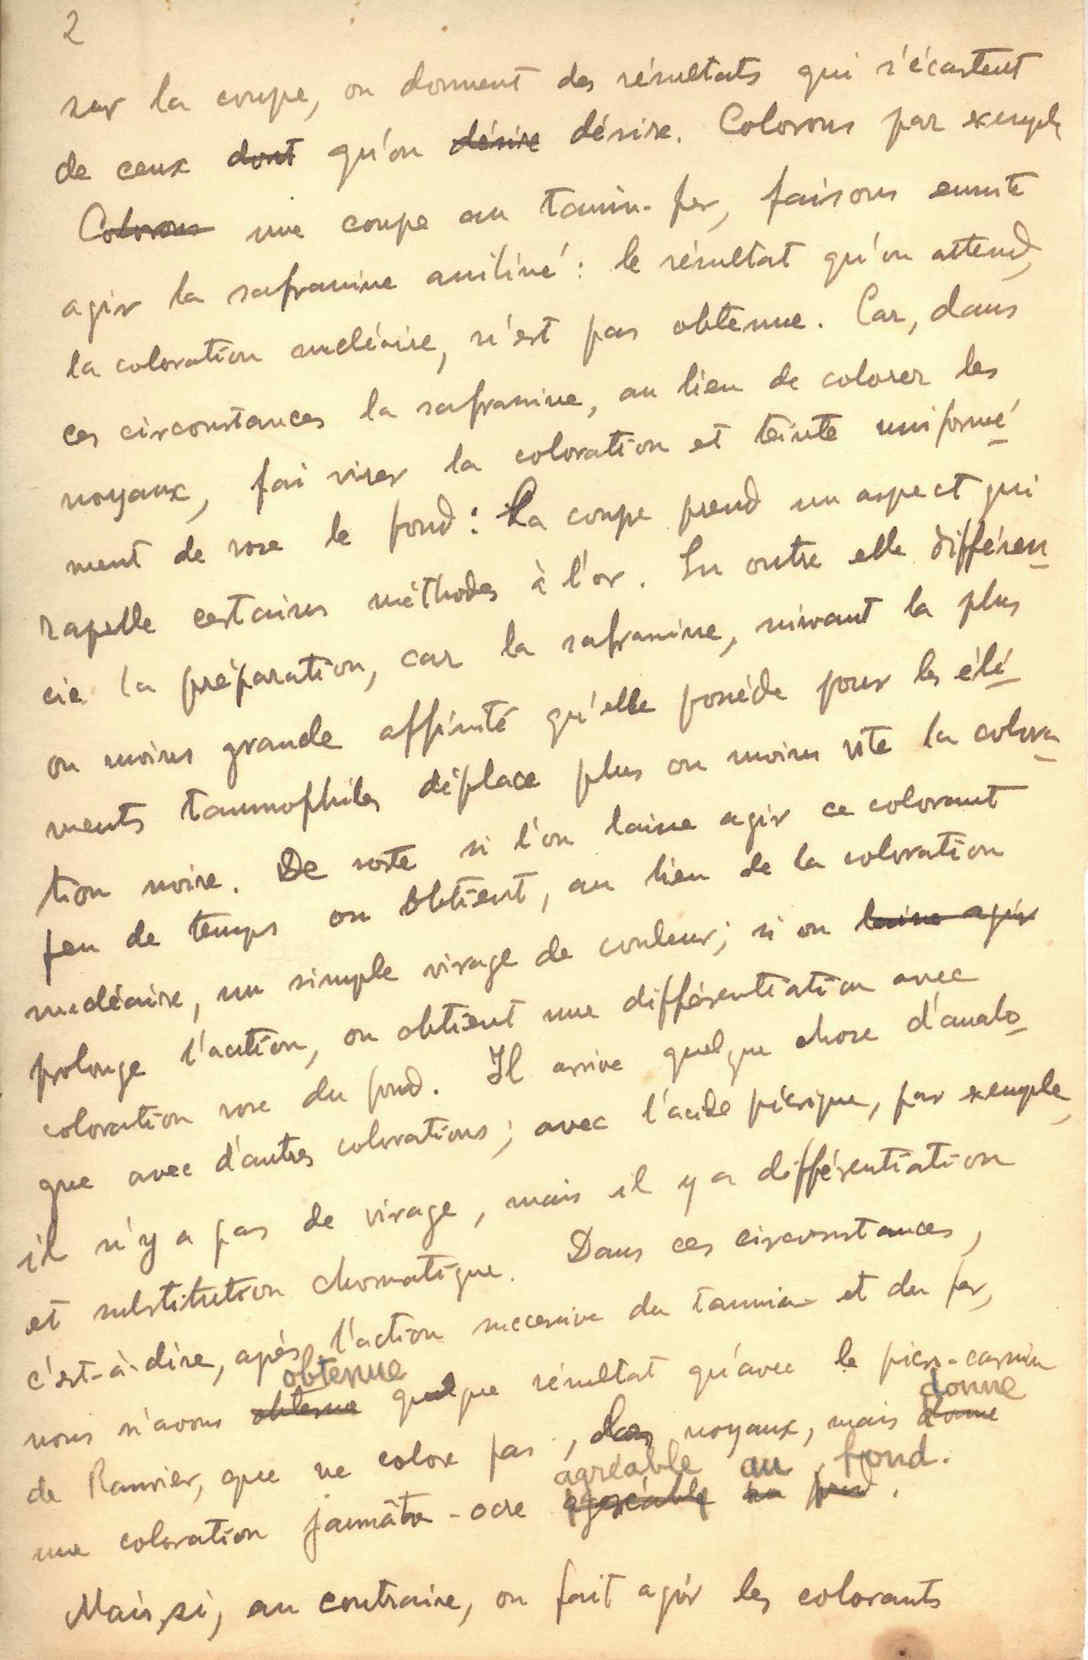 2
sur la coupe, ou donnent des résultats qui s'écartent
de ceux dont qu'on désire désire. Colorons par exemple
Colorons une coupe au tanin-fer, faisons ensuite
agir la safranine aniliné: le résultat qu'on attend,
la coloration nucléaire, n'est pas obtenue. Car, dans
ces circonstances la safranine, au lieu de colorer les
noyaux, fai virer la coloration et teinte uniformé
ment de rose le fond: La coupe prend un aspect qui
rapelle certains méthodes à l'or. En outre elle différen
cie la préparation, car la safranine, suivant la plus
ou moins grande affinité qu'elle possède pour les élé
ments tannophiles déplace plus ou moins vite la colora
tion noire. De sorte si l'on laisse agir ce colorant
peu de temps on obtient, au lieu de la coloration
nucléaire, un simple virage de couleur; si on laisse agir
prolonge l'action, on obtient une différentiation avec
coloration rose du fond. Il arrive quelque chose d'analo
gue avec d'autres colorations; avec l'acide picrique, par exemple,
il n'y a pas de virage, mais il y a différentiation
et substitution chromatique. Dans ces circonstances,
c'est-à-dire, après l'action successive du tannin et du fer,
obtenue
nous n'avons obtenue quelque résultat qu'avec le picro-carmin
donne
de Ranvier, que ne colore pas, les noyaux, mais donne
agréable au fond.
une coloration jaunâtre-ocre agréable au fond.
Mais, si, au contraire, on fait agir les colorants